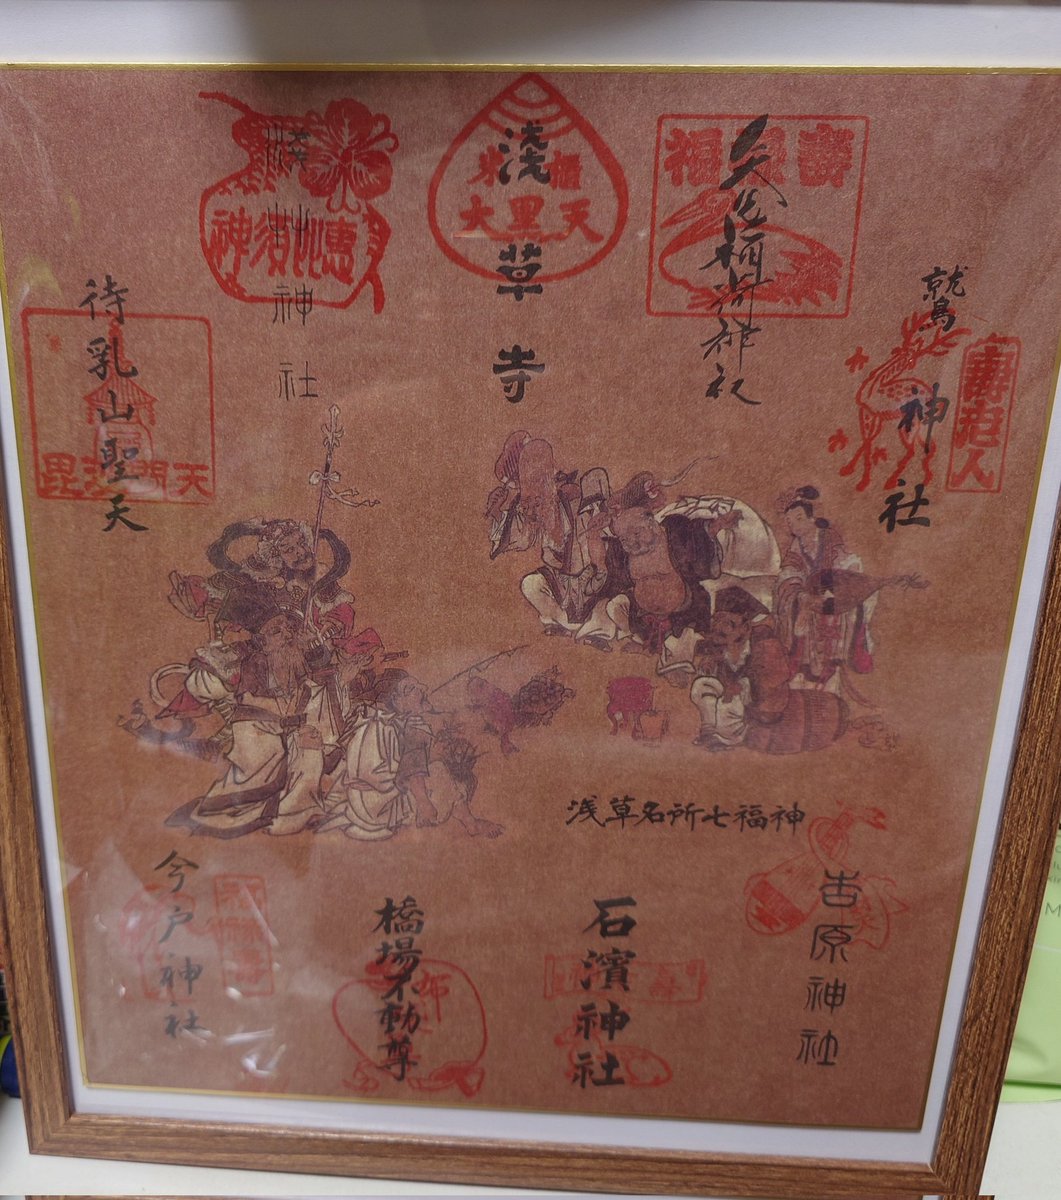 鷲神社
壽老人
矢先稲荷神社
福禄壽
浅草寺
大黒天
浅草神社
恵比須神
待乳山聖天
毘沙門天
浅草名所七福神
吉原神社
石濱神社
橋場不動尊
今戸神社